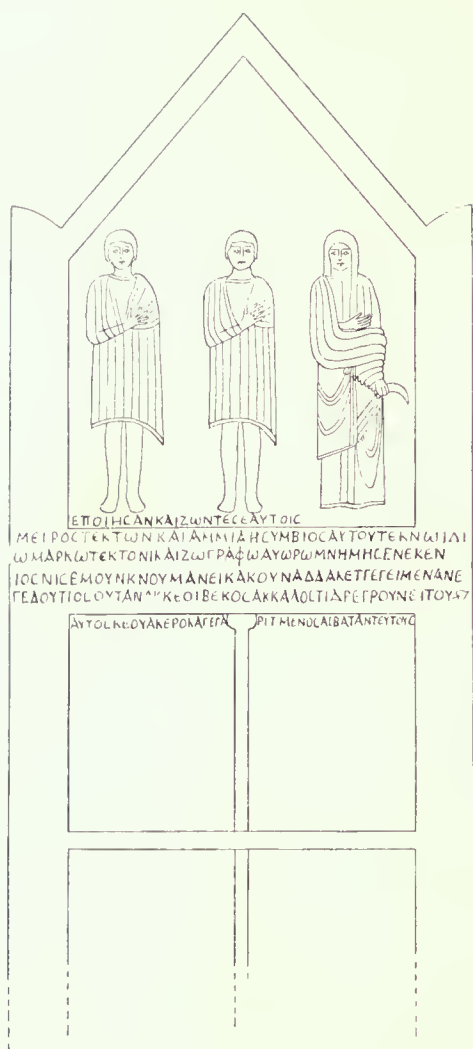 ΕΠΟΙΗСΑΝΚΑΙΖΩΝΤΕСΕΑΥΤΟΙС
ΜΕΙΡΟСΤΕΚΤΩΝΚΑΙΑΜΜΙΑΗСΥΜΒΙΟСΑΥΤΟΥΤΕΚΝΩΙΔΙ
ΩΜΑΡΚΩΤΕΚΤΟΝΙΚΑΙΖΩΓΡΑΦΩΑΥΩΡΩΜΝΗΜΗСΕΝΕΚΕΝ
ΙΟСΝΙСΕΜΟΥΝΚΝΟΥΜΑΝΕΙΚΑΚΟΥΝΑΔΔΑΚΕΤΓΕΓΕΙΜΕΝΑΝΕ
ΓΕΔΟΥΤΙΟСΟΥΤΑΝ ΚΕΟΙΒΕΚΟСΑΚΚΑΛΟСΤΙΔΡΕΓΡΟΥΝΕΙΤΟΥ
ΑΥΤΟСΚΕΟΥΑΚΕΡΟΚΑΓΕΓΑ ΡΙΤΜΕΝΟСΑΙΒΑΤΑΝΤΕΥΤΟΥС